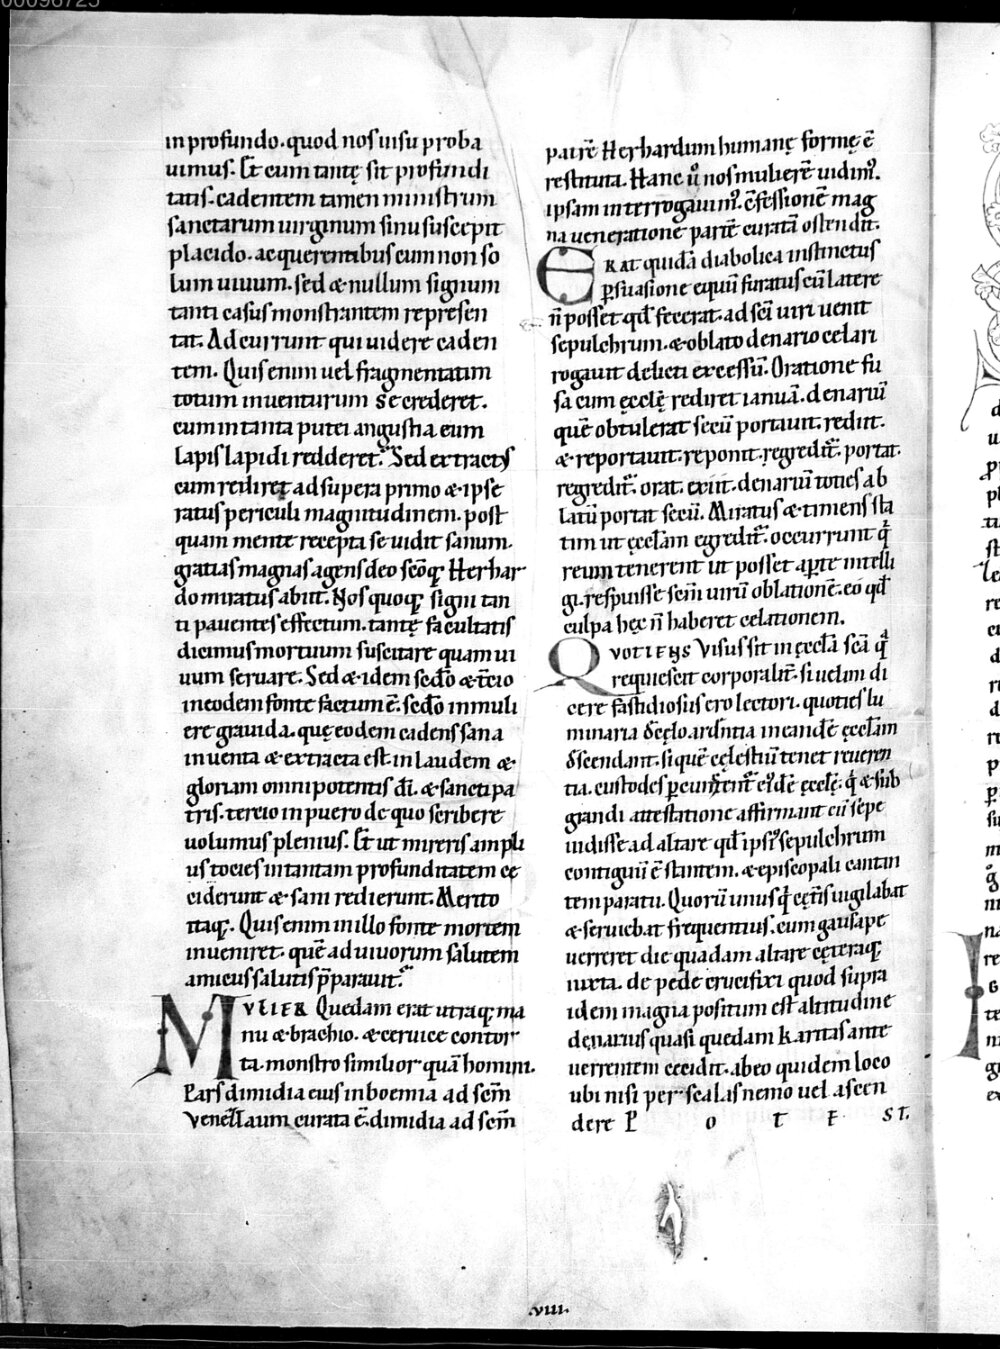 in profundo. quod nos uisu proba
uimus. Et cum tantę sit profundi
tatis. cadentem tamen ministrum
sanctarum uirginum sinu suscepit
placido. ac querentibus eum non so
lum uiuum. sed & nullum signum
tanti casus monstrantem represen
tat. Adcurrunt qui uidere caden
tem. Quis enim uel fragmentatim
totum inuenturum se crederet.
cum in tanta putei angustia eum
lapis lapidi redderet. Sed extract9
cum rediret ad supera primo & ipse
ratus periculi magnitudinem. post
quam mente recepta se uidit sanum.
gratias magnas agens deo scōq; Herhar
do miratus abiit. Nos quoq; signi tan
ti pauentes effectum. tantę facultatis
dicimus mortuum suscitare quam ui
uum seruare. Sed & idem scd̄o & t̄cio
in eodem fonte factum ē. scd̄o in muli
ere grauida. quę eodem cadens sana
inuenta & extracta est. in laudem &
gloriam omnipotentis dī. & sancti pa
tris. tercio in puero de quo scribere
uolumus plenius. Et ut mireris ampli
us tocies in tantam profunditatem ce
ciderunt & sani redierunt. Merito
itaq;. Quis enim in illo fonte mortem
inueniret. quē ad uiuorum salutem
amicus salutis p̄parauit.
MVLIER Quedam erat utraq; ma
nu & brachio. & ceruice contor
ta. monstro similior quā homini.
Pars dimidia eius in boemia ad scm̄
Venezlaum curata ē. dimidia ad scm̄
patrē Herhardum humanę formę ē
restituta. Hanc ū nos mulierē uidim9.
ipsam interrogauim9. c̄fessionē mag
na ueneratione partē curatā ostendit.
ERAT quidā diabolica instinctus
p̱suasione equū furatus cū latere
n̄ posset qd̄ fecerat. ad scī uiri uenit
sepulchrum. & oblato denario celari
rogauit delicti excessū. Oratione fu
sa cum ęcclę rediret ianuā. denariū
quē obtulerat secū portauit. rediit.
& reportauit. reponit. regredit̄. portat.
regredit̄. orat. exiit. denariū toties ab
latū portat secū. Miratus & timens sta
tim ut ęcclām egredit̄. occurrunt q̄
reum tenerent ut posset ap̱te intelli
gi. respuisse scm̄ uirū oblationē. eo qd̄
culpa hęc n̄ haberet celationem.
QVOTIENS Visus sit in ęcclā scā q̄
requiescit corporalit̄. si uelim di
cere fastidiosus ero lectori. quoties lu
minaria de cęlo ardentia in eandē ęcclām
descendant. siquē cęlestiū tenet reueren
tia. custodes p̱cunctent̄ eiusdē ęcclę. q̄ & sub
grandi attestatione affirmant cū sepe
uidisse ad altare qd̄ ipsi9 sepulchrum
contiguū ē stantem. & episcopali cantan
tem paratu. Quorū unus q̄ cęt̄is uigilabat
& seruiebat frequentius. cum gausape
uerreret die quadam altare cęteraq;
iuxta. de pede crucifixi quod supra
idem magna positum est altitudine
denarius quasi quedam karitas ante
uerrentem cecidit. ab eo quidem loco
ubi nisi per scalas nemo uel ascen
dere P O T E ST.
.VIII.